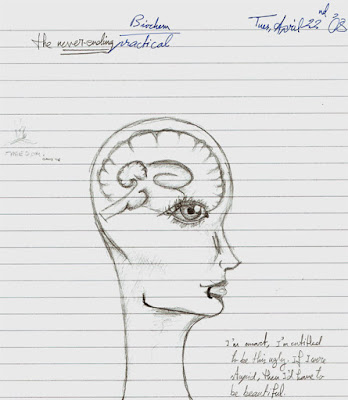 Biochem
Tues, April 22nd, 08
the never-ending practical
I'm smart, I'm entitled
to be this ugly. If I were
stupid, then I'd have to
be beautiful.